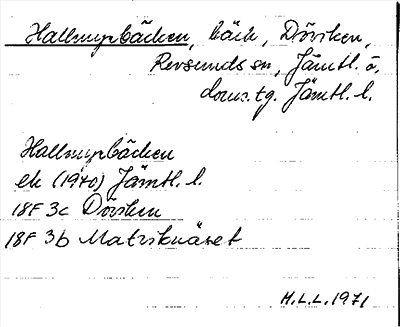 Hallmyrbäcken, bäck, Döviken,
Revsunds sn, Jämtl. ö,
doms.tg. Jämtl. l.
Hallmyrbäcken
ek (1970) Jämtl. l.
18F 3c Döviken
18F 3b Matviknäset
H.L.L. 1971